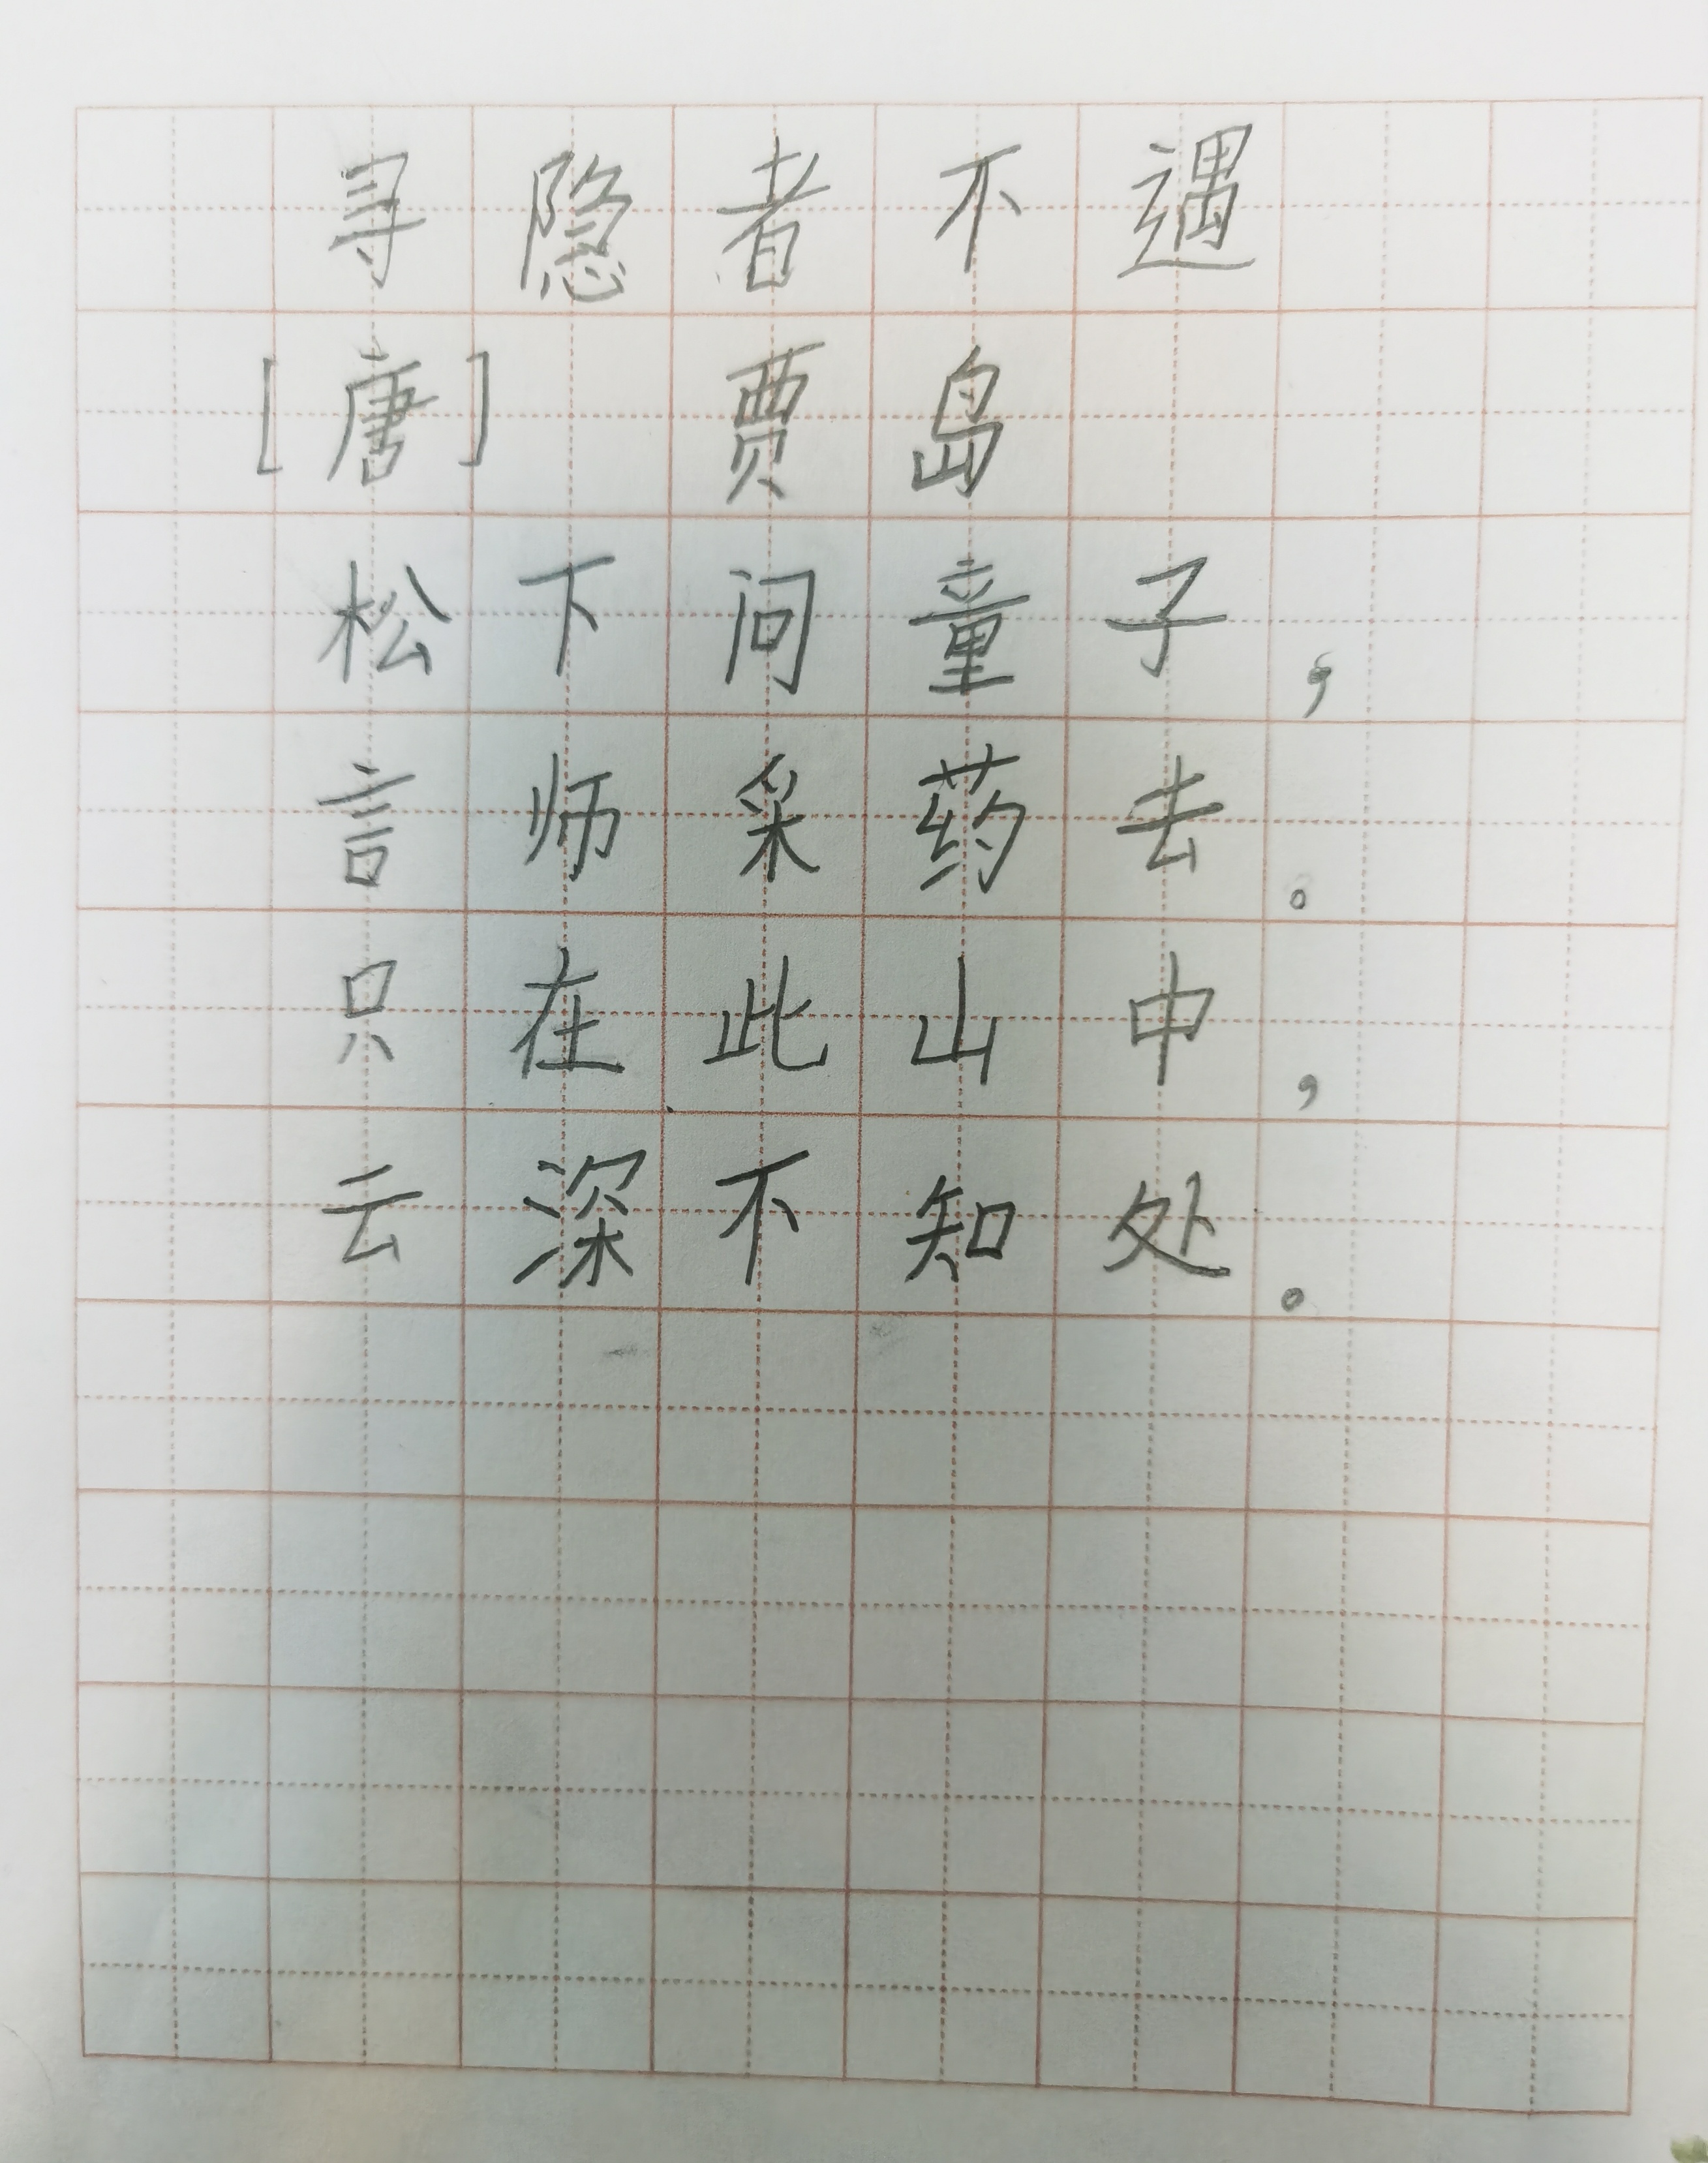 寻隐者不遇
[唐] 贾岛
松下问童子，
言师采药去。
只在此山中，
云深不知处。